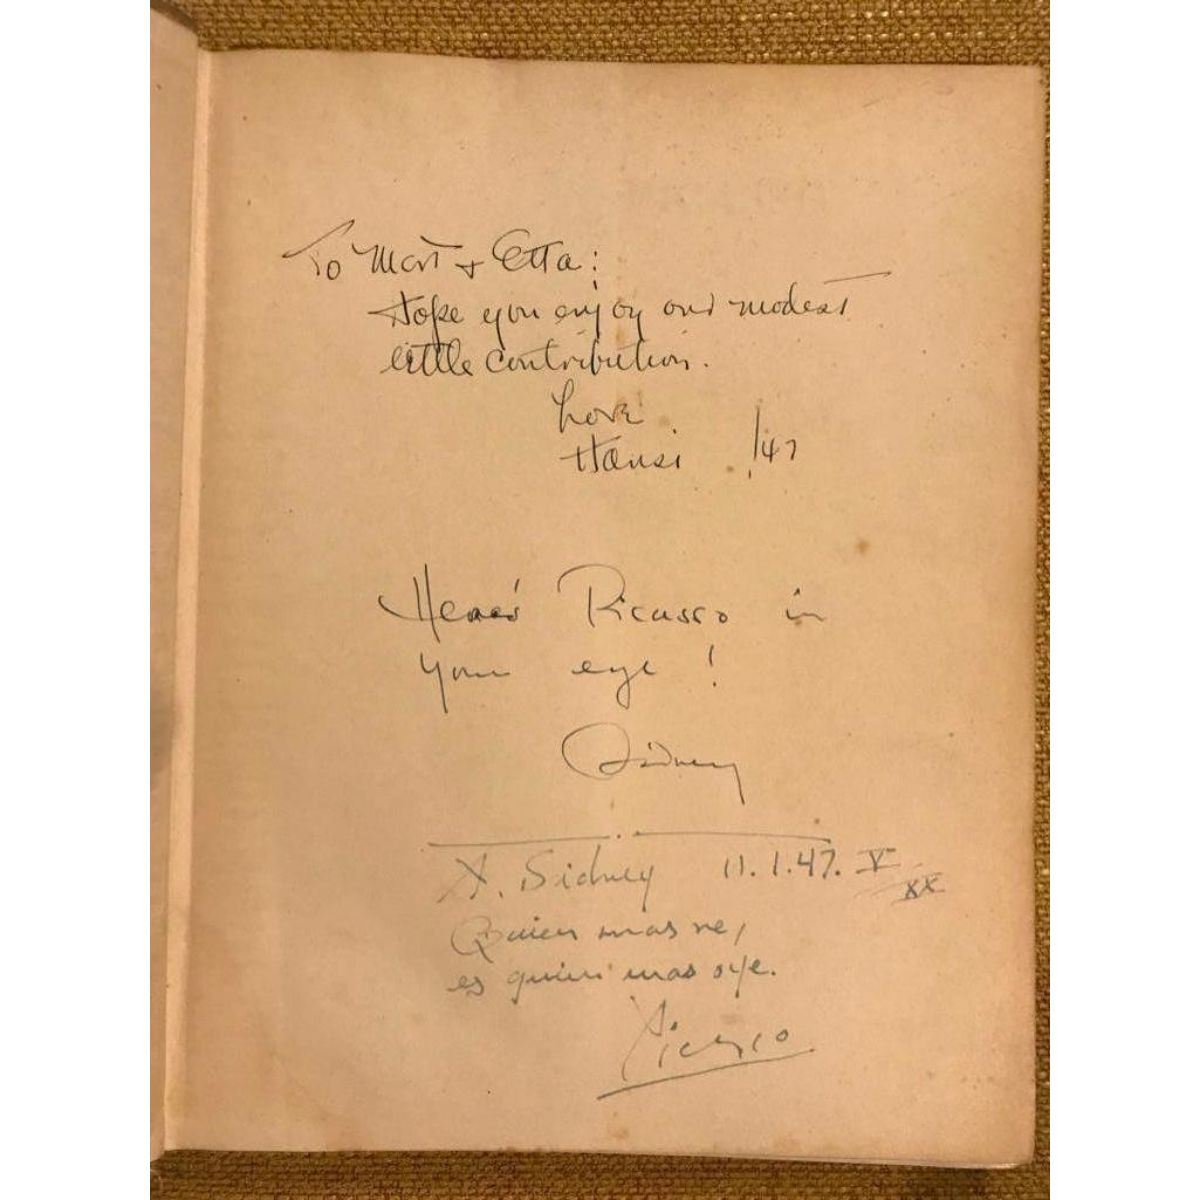 To Mort + Etta:
Hope you enjoy our modest
little contribution.
Love
Hansi /47
Here's Picasso in
your eye!
Sidney
A. Sidney 11.1.47. V
XX
Quien mas ve,
es quien mas oye.
Picasso